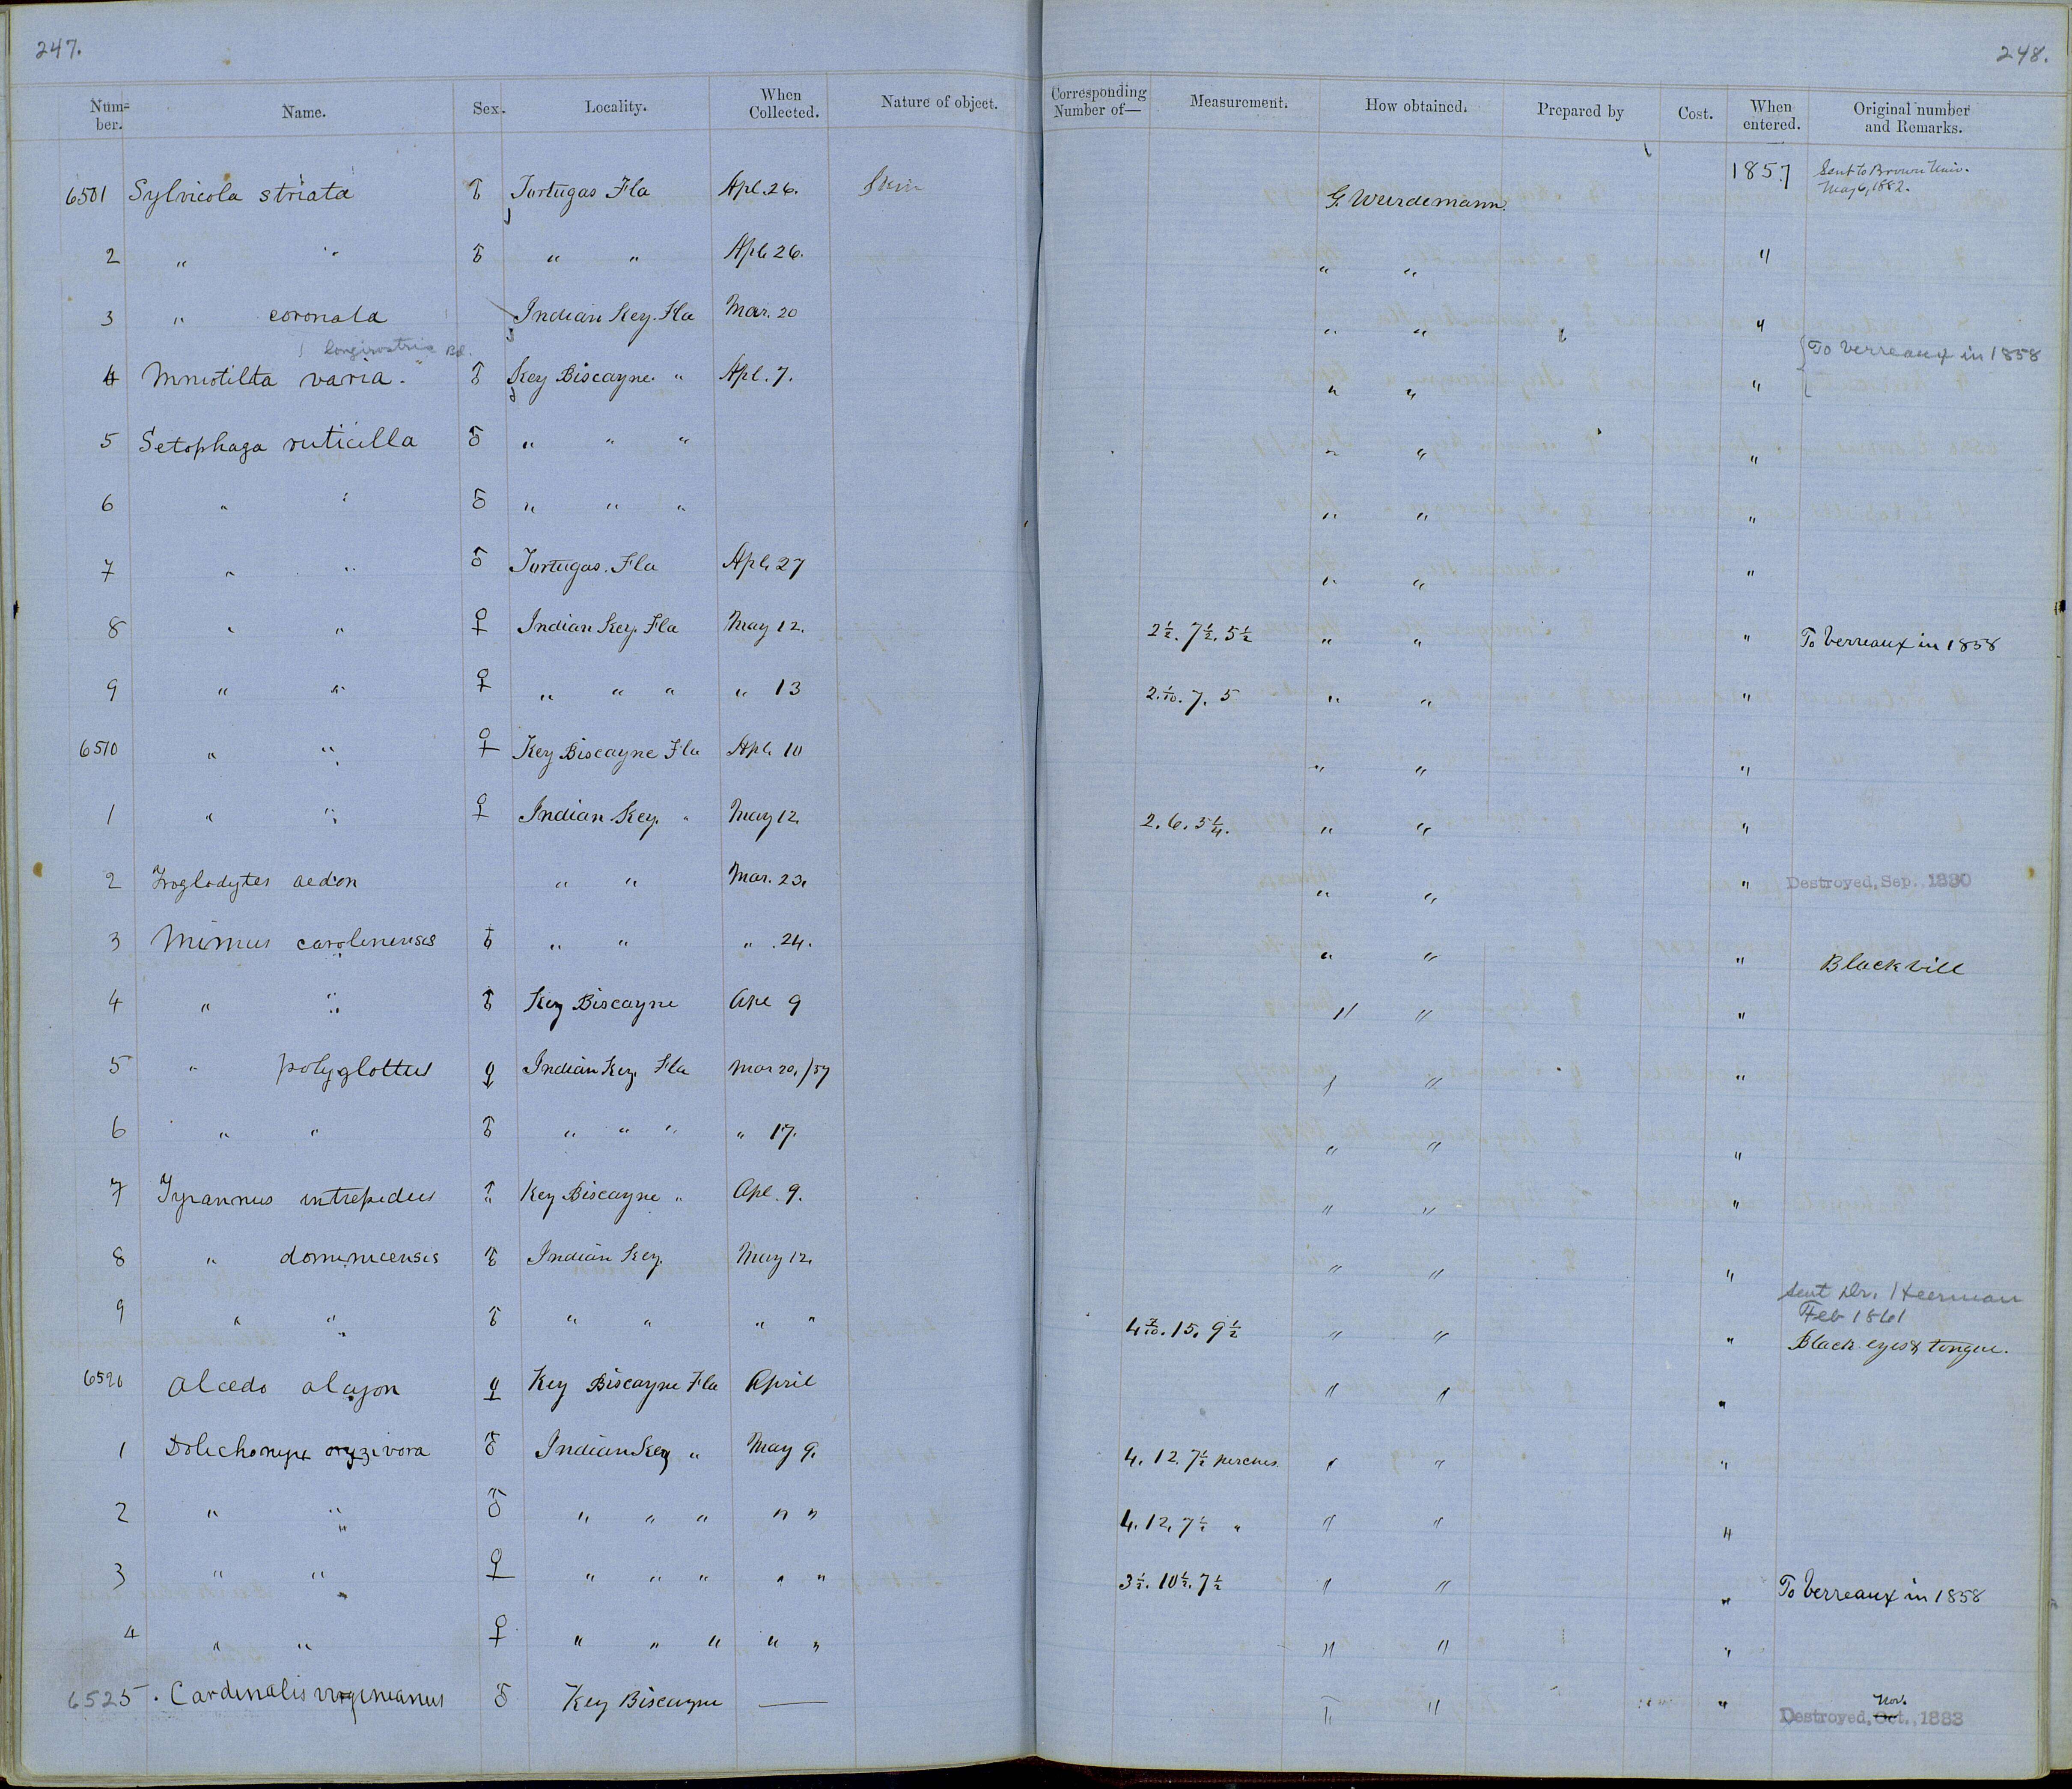 247.
248.
Num=ber. Name. Sex. Locality. When Collected. Nature of object. Corresponding Number of— Measurement. How obtained. Prepared by Cost. When entered. Original number and Remarks.
6501 Sylvicola striata ♂ Tortugas Fla Apl. 26. Skin G. Wurdemann. 1857 Sent to Brown Univ. May 6, 1882.
2 " " ♂ " " Apl. 26. " " "
3 " coronata Indian Key. Fla Mar. 20 " " "
longirostris Bd.
4 Mniotilta varia. ♂ Key Biscayne. " Apl. 7. " " " { To Verreaux in 1858
5 Setophaga ruticilla ♂ " " " " " "
6 " " ♂ " " " " " "
7 " " ♂ Tortugas. Fla Apl. 27 " " "
8 " " ♀ Indian Key. Fla May 12. 2½. 7½. 5½ " " " To Verreaux in 1858
9 " " ♀ " " " " 13 2.1/10. 7. 5 " " "
6510 " " ♀ Key Biscayne Fla Apl. 10 " " "
1 " " ♀ Indian Key. " May 12. 2. 6. 5¼. " " "
2 Troglodytes aedon " " Mar. 23. " " " Destroyed, Sep., 1880
3 Mimus carolinensis ♂ " " " 24. " " " Black bill
4 " " ♂ Key Biscayne Apl 9 " " "
5 " polyglottus ♀ Indian Key. Fla Mar 20, /57 " " "
6 " " ♂ " " " " 17. " " "
7 Tyrannus intrepidus ♂ Key Biscayne " Apl. 9. " " "
8 " dominicensis ♂ Indian Key. May 12. " " "
Sent Dr. Heerman
Feb 1861
9 " " ♂ " " " " 4 3/10. 15. 9½ " " " Black eyes & tongue.
6520 Alcedo alcyon ♀ Key Biscayne Fla April " " "
1 Dolichonyx oryzivora ♂ Indian Key " May 9. 4. 12. 7½ perches. " " "
2 " " ♂ " " " " " 4. 12. 7½ " " " "
3 " " ♀ " " " " " 3½. 10½. 7½ " " " To Verreaux in 1858
4 " " ♀ " " " " " " " "
6525. Cardinalis virginianus ♂ Key Biscayne — " " " Destroyed, Oct., 1883
Nov.